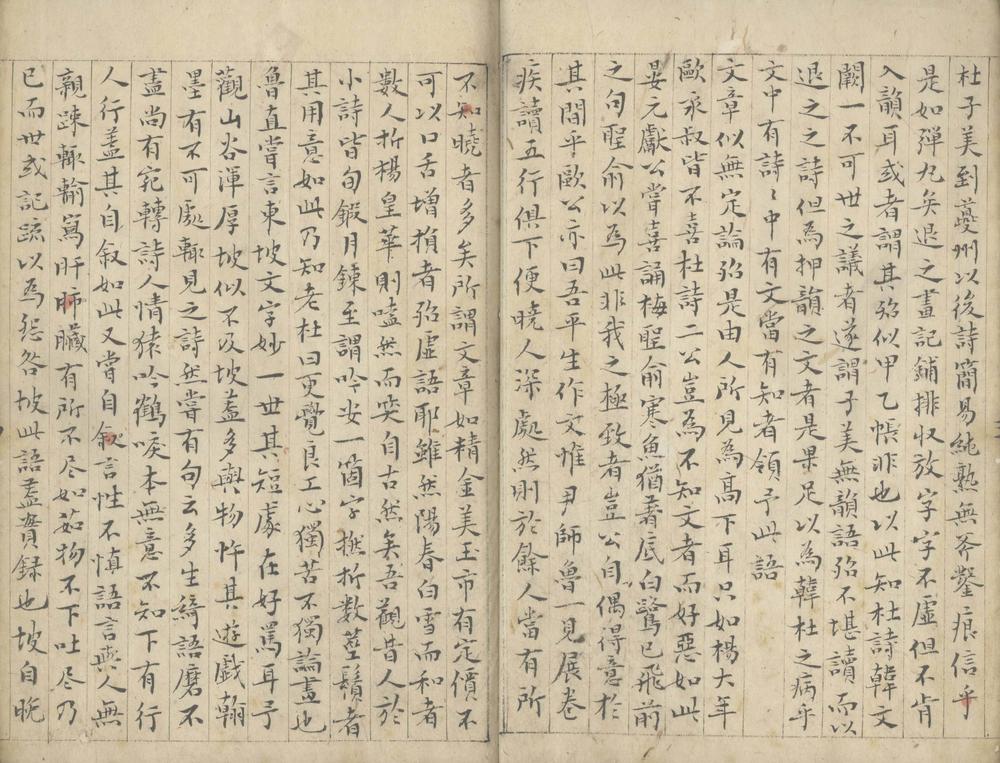 杜子美到蘷州以後詩簡易純熟無斧鑿痕信乎
是如弹丸矣退之畫記鋪排収放字字不虛但不肯
入韻耳或者謂其殆似甲乙帳非也以此知杜詩韓文
闕一不可世之議者遂謂子美無韻語殆不堪讀而以
退之之詩但為押韻之文者是果足以為韓杜之病乎
文中有詩〻中有文當有知者領予此語
文章似無定論殆是由人所見為高下耳只如楊大年
歐永叔皆不喜杜詩二公豈為不知文者而好惡如此
晏元獻公嘗喜誦梅聖俞寒魚猶著底白鷺已飛前
之句聖俞以為此非我之極致者豈公自偶得意於
其間乎歐公亦曰吾平生作文惟尹師魯一見展卷
疾讀五行俱下便曉人深處然則於餘人當有所
不知曉者多矣所謂文章如精金美玉市有定價不
可以口舌增損者殆虛語耶雖然陽春白雪而和者
數人折楊皇華則嗑然而笑自古然矣吾觀昔人於
小詩皆旬鍜月鍊至謂吟安一箇字撚折数莖鬚者
其用意如此乃知老杜曰更覺良工心獨苦不獨論畫也
魯直嘗言東坡文字妙一世其短處在好罵耳予
觀山谷渾厚坡似不及坡蓋多與物忤其遊戲翰
墨有不可處輒見之詩然嘗有句云多生綺語磨不
盡尚有宛轉詩人情猿吟鶴唳本無意不知下有行
人行蓋其自叙如此又嘗自叙言性不慎語言與人無
親疎輒輸寫肝肺臟有所不尽如茹物不下吐尽乃
已而世或記疏以為怨咎坡此語蓋實録也坡自晚